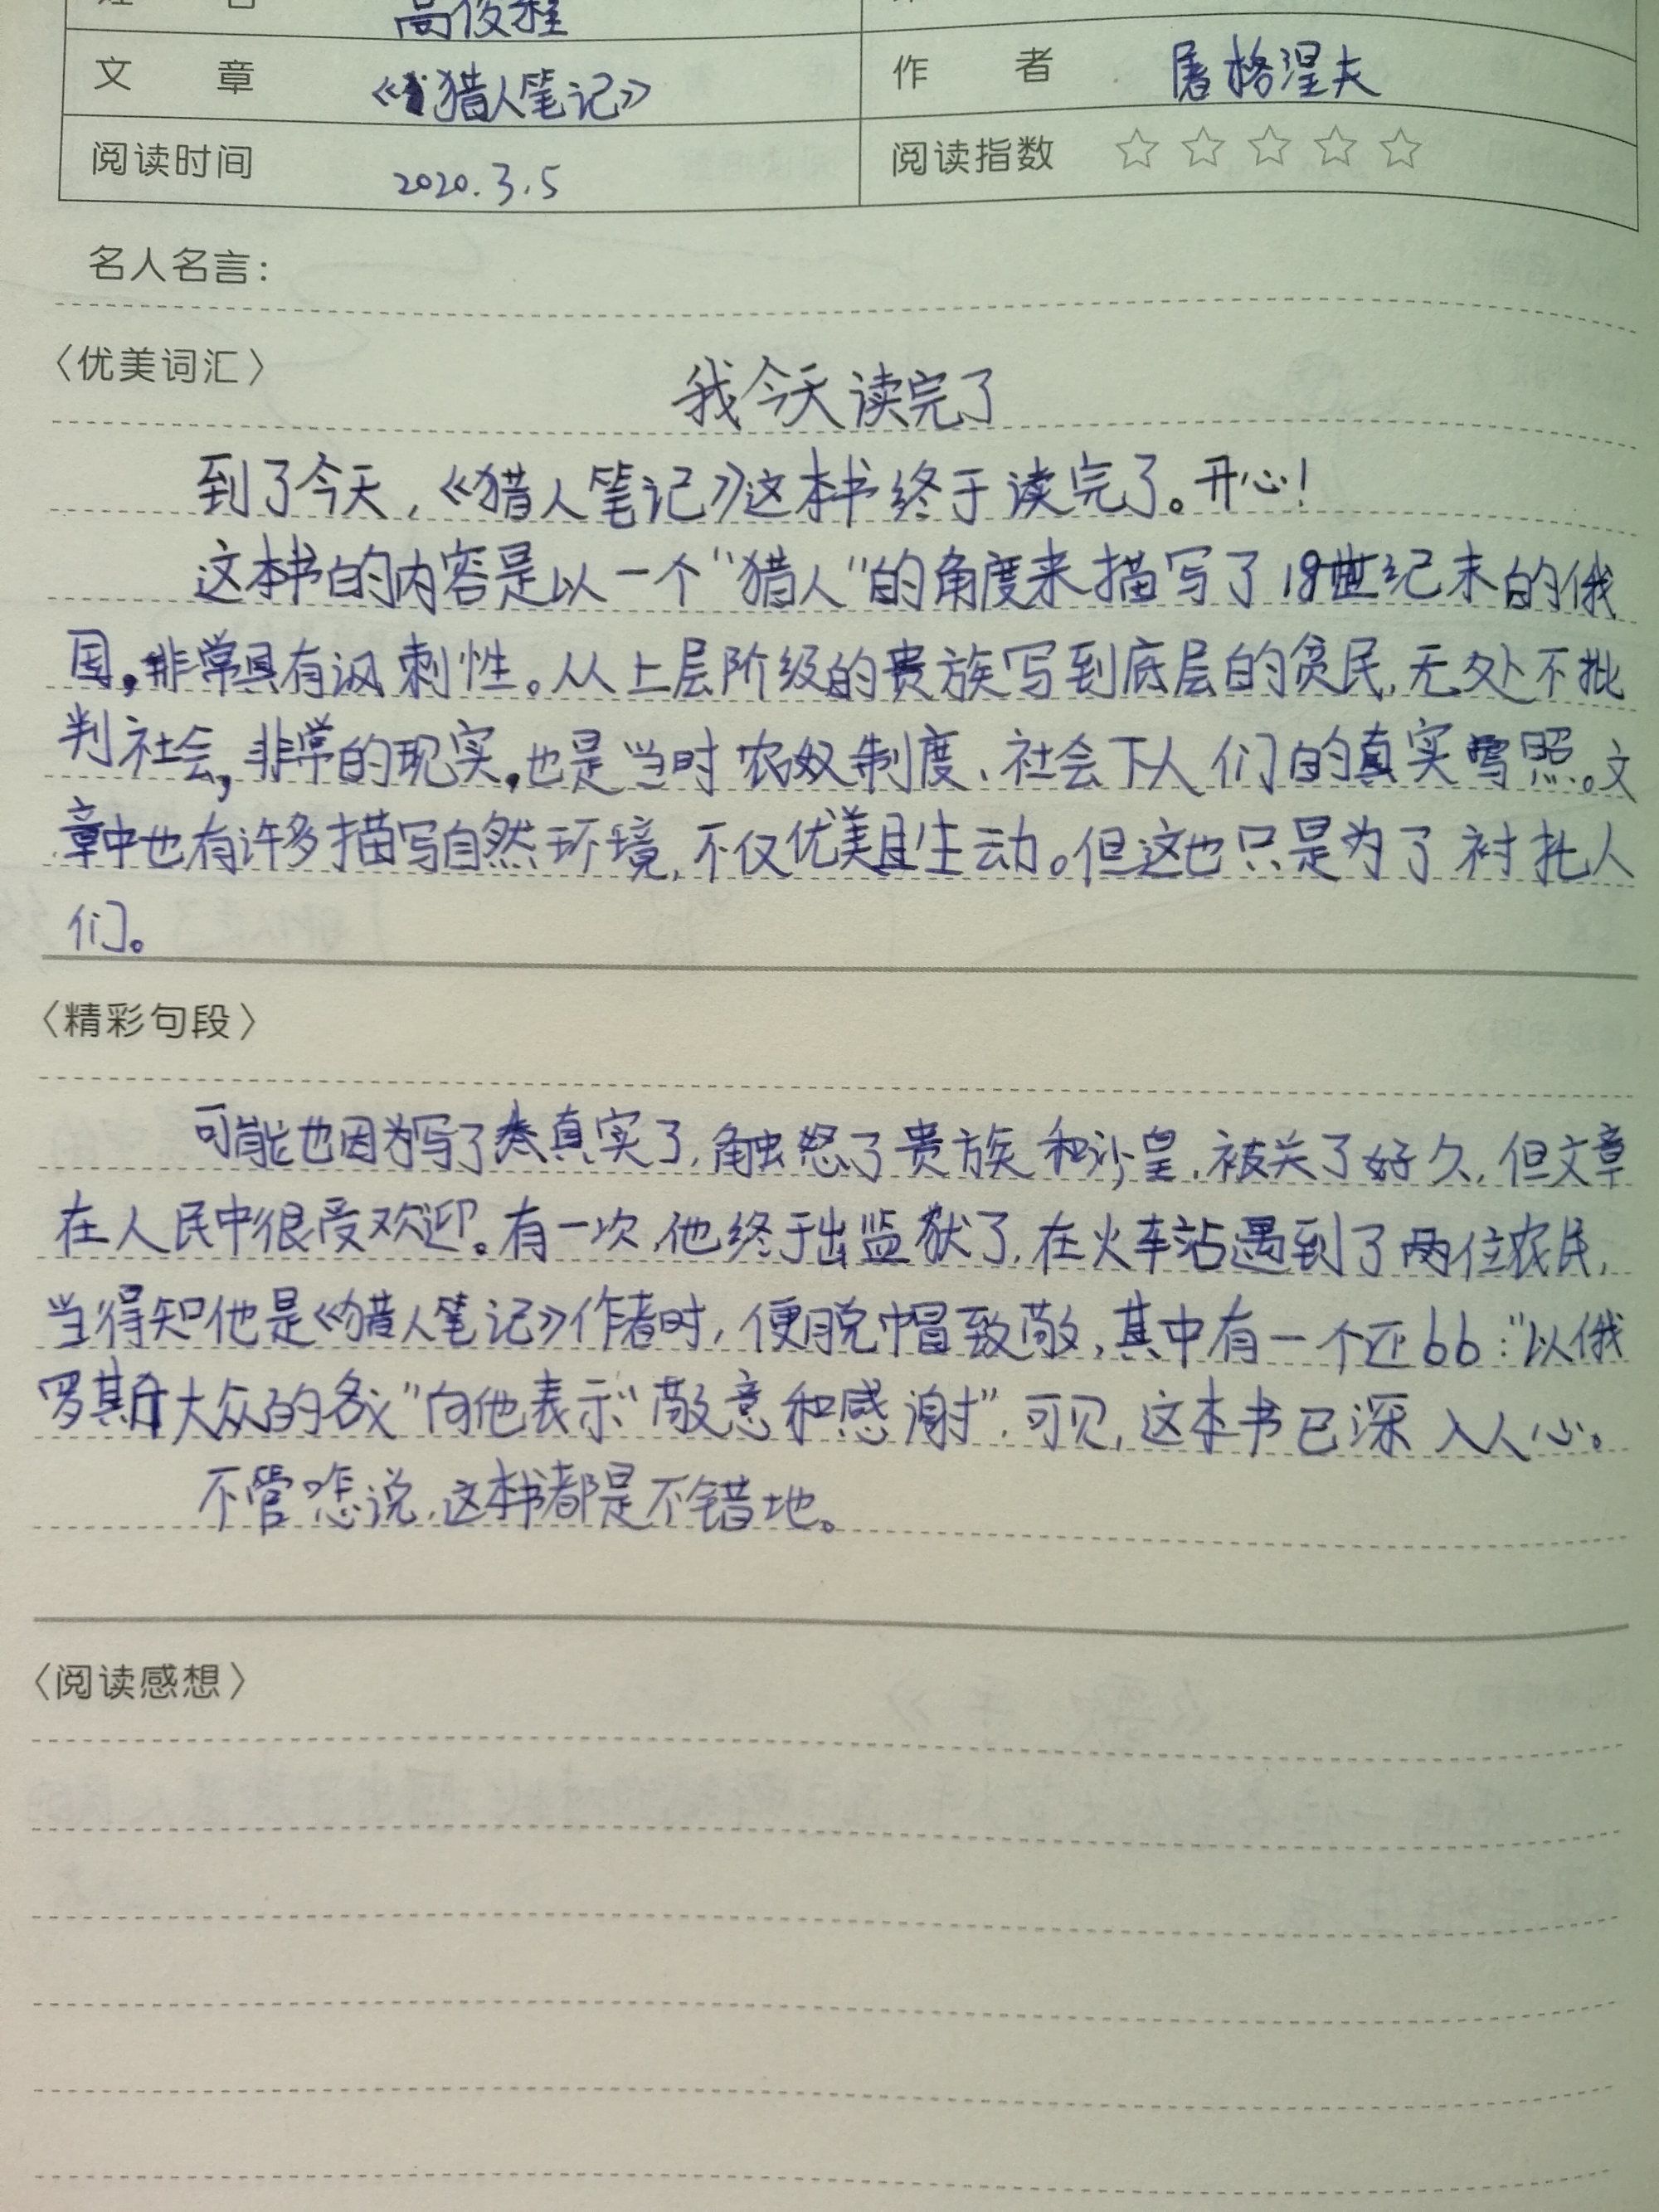 姓 名 高俊程
文 章 《猎人笔记》 作 者 屠格涅夫
阅读时间 2020.3.5 阅读指数 ☆☆☆☆☆
名人名言：
〈优美词汇〉
我今天读完了
到了今天，《猎人笔记》这本书终于读完了。开心！
这本书的内容是以一个"猎人"的角度来描写了19世纪末的俄
国，非常具有讽刺性。从上层阶级的贵族写到底层的贫民，无处不批
判社会，非常的现实，也是当时农奴制度、社会下人们的真实写照。文
章中也有许多描写自然环境，不仅优美且生动。但这也只是为了衬托人
们。
〈精彩句段〉
可能也因为写了太真实了，触怒了贵族和沙皇，被关了好久，但文章
在人民中很受欢迎。有一次，他终于出监狱了，在火车站遇到了两位农民，
当得知他是《猎人笔记》作者时，便脱帽致敬，其中有一个还bb："以俄
罗斯大众的名义"向他表示"敬意和感谢"，可见，这本书已深入人心。
不管咋说，这本书都是不错地。
〈阅读感想〉